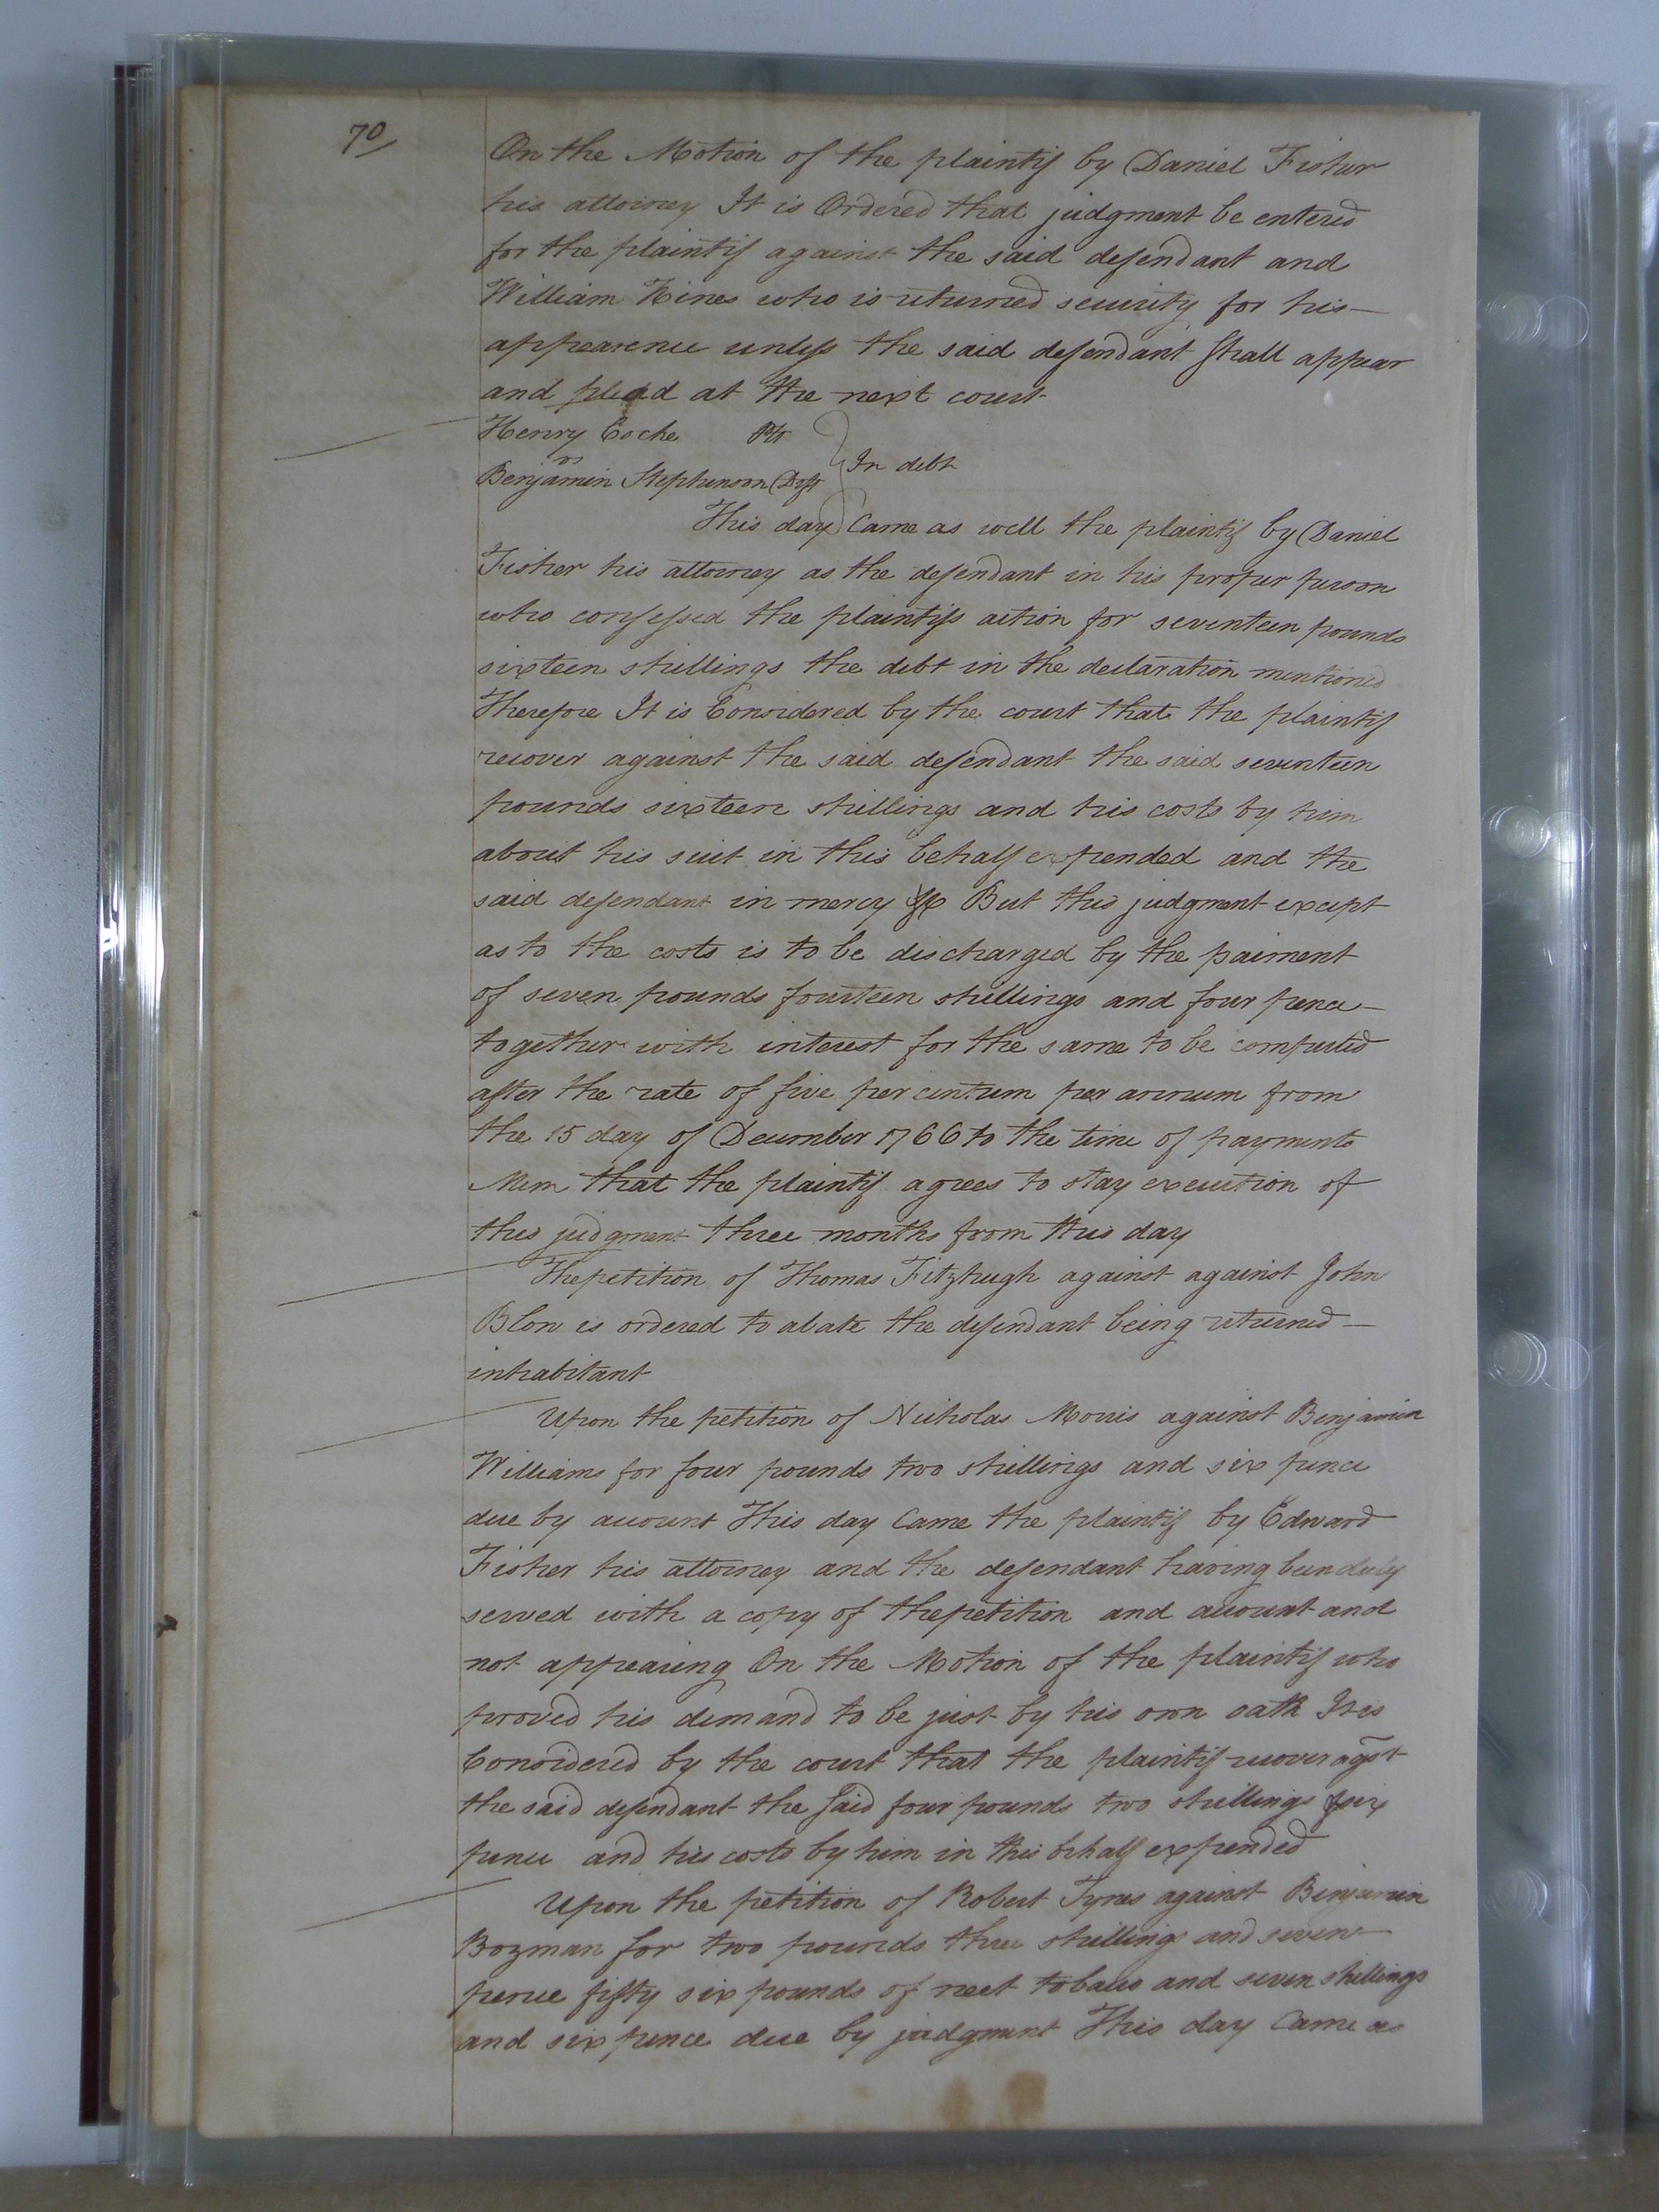 70
On the Motion of the plaintif by Daniel Fisher
his attorney It is Ordered that judgment be entered
for the plaintif against the said defendant and
William Hines who is returned security for his
appearence unless the said defendant shall appear
and plead at the next court
Henry Cocke Plt
vs
In debt
Benjamin Stephenson Deft
This day Came as well the plaintif by Daniel
Fisher his attorney as the defendant in his proper person
who confessed the plaintifs action for seventeen pounds
sixteen shillings the debt in the declaration mentioned
Therefore It is Considered by the court that the plaintif
recover against the said defendant the said seventeen
pounds sixteen shillings and his costs by him
about his suit in this behalf expended and the
said defendant in mercy &c But this judgment except
as to the costs is to be discharged by the paiment
of seven pounds fourteen shillings and four pence
together with interest for the same to be computed
after the rate of five per centum per annum from
the 15 day of December 1766 to the time of payments
Mem that the plaintif agrees to stay execution of
this judgment three months from this day
The petition of Thomas Fitzhugh against against John
Blow is ordered to abate the defendant being returned
inhabitant
Upon the petition of Nicholas Morris against Benjamin
Williams for four pounds two shillings and six pence
due by account This day Came the plaintif by Edward
Fisher his attorney and the defendant having been duly
served with a copy of the petition and account and
not appearing On the Motion of the plaintif who
proved his demand to be just by his own oath It is
Considered by the court that the plaintif recover agst
the said defendant the said four pounds two shillings & six
pence and his costs by him in this behalf expended
Upon the petition of Robert Tynes against Benjamin
Bozman for two pounds three shillings and seven
pence fifty six pounds of neet tobaco and seven shillings
and six pence due by judgment This day Came as